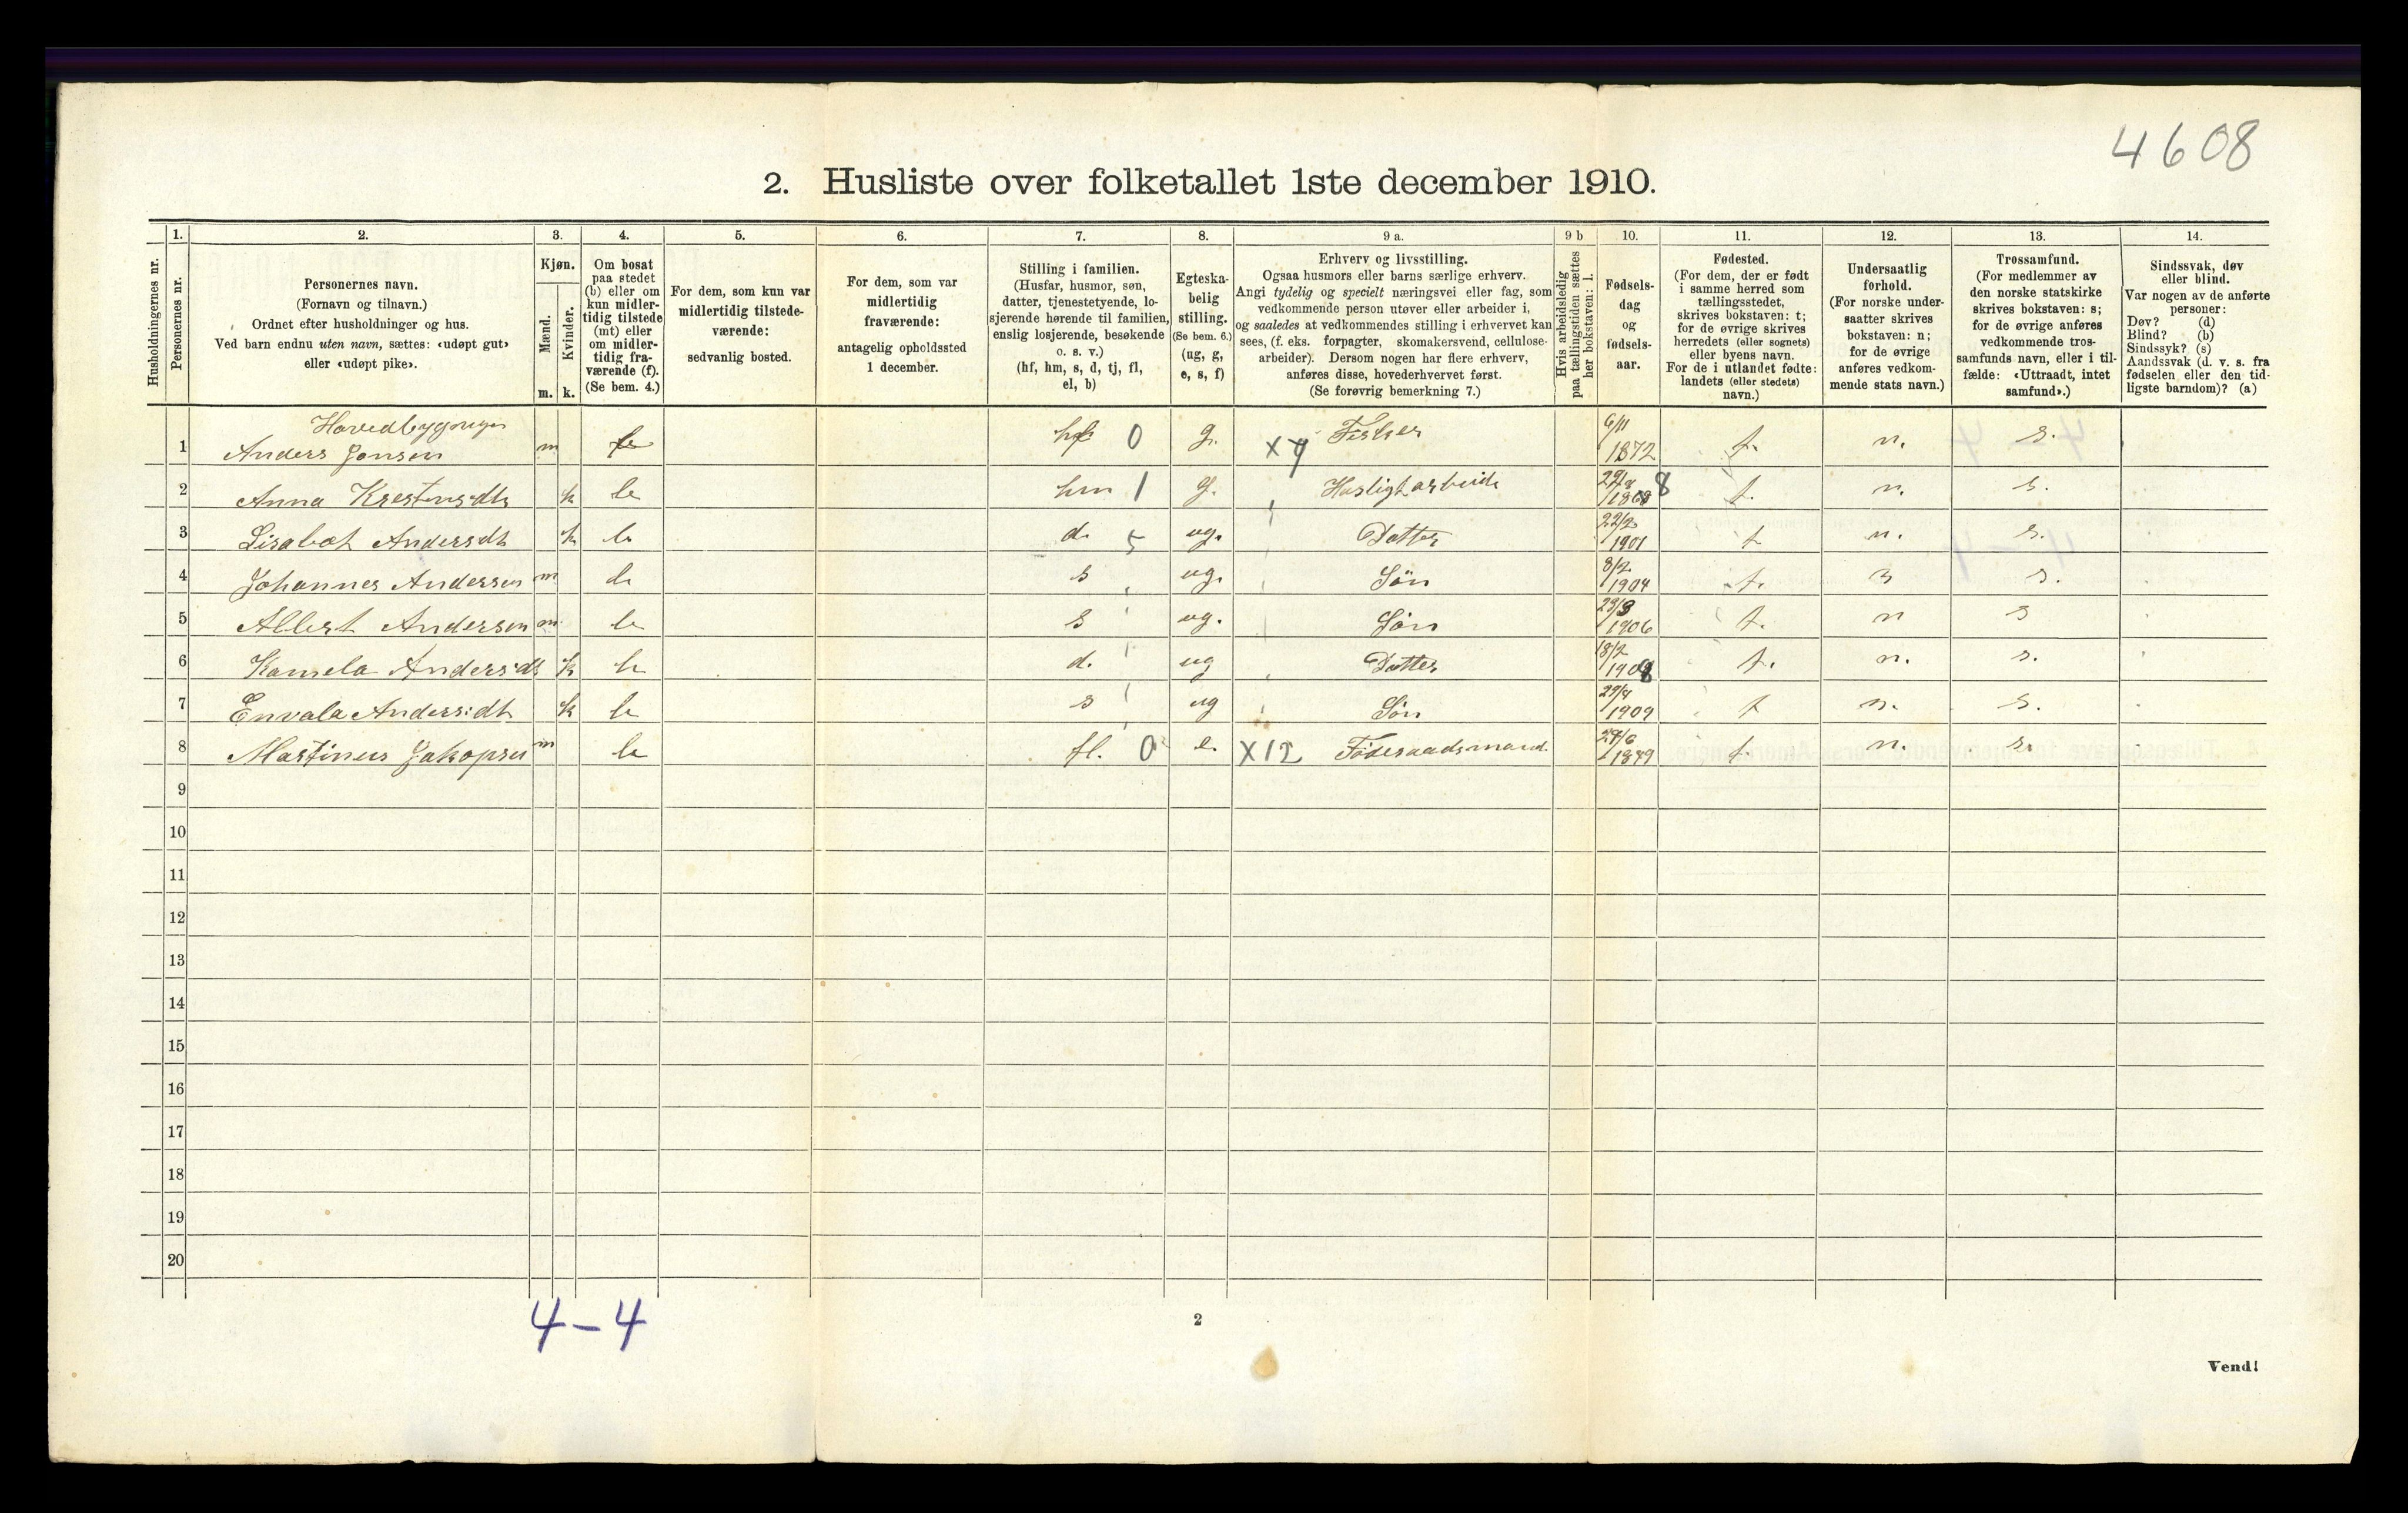 4608
2. Husliste over folketallet 1ste december 1910.
Husholdningernes nr.
1.
Personernes nr.
2.
Personernes navn.
(Fornavn og tilnavn.)
Ordnet efter husholdninger og hus.
Ved barn endnu uten navn, sættes: «udøpt gut»
eller «udøpt pike».
3.
Kjøn.
Mænd.
Kvinder.
m. k.
4.
Om bosat
paa stedet
(b) eller om
kun midler-
tidig tilstede
(mt) eller
om midler-
tidig fra-
værende (f).
(Se bem. 4.)
5.
For dem, som kun var
midlertidig tilstede-
værende:
sedvanlig bosted.
6.
For dem, som var
midlertidig
fraværende:
antagelig opholdssted
1 december.
7.
Stilling i familien.
(Husfar, husmor, søn,
datter, tjenestetyende, lo-
sjerende hørende til familien,
enslig losjerende, besøkende
o. s. v.)
(hf, hm, s, d, tj, fl,
el, b)
8.
Egteska-
belig
stilling.
(Se bem. 6.)
(ug, g,
e, s, f)
9 a.
Erhverv og livsstilling.
Ogsaa husmors eller barns særlige erhverv.
Angi tydelig og specielt næringsvei eller fag, som
vedkommende person utøver eller arbeider i,
og saaledes at vedkommendes stilling i erhvervet kan
sees, (f. eks. forpagter, skomakersvend, cellulose-
arbeider). Dersom nogen har flere erhverv,
anføres disse, hovederhvervet først.
(Se forøvrig bemerkning 7.)
9 b
Hvis arbeidsledig
paa tællingstiden sættes
her bokstaven: l.
10.
Fødsels-
dag
og
fødsels-
aar.
11.
Fødested.
(For dem, der er født
i samme herred som
tællingsstedet,
skrives bokstaven: t;
for de øvrige skrives
herredets (eller sognets)
eller byens navn.
For de i utlandet fødte:
landets (eller stedets)
navn.)
12.
Undersaatlig
forhold.
(For norske under-
saatter skrives
bokstaven: n;
for de øvrige
anføres vedkom-
mende stats navn.)
13.
Trossamfund.
(For medlemmer av
den norske statskirke
skrives bokstaven: s;
for de øvrige anføres
vedkommende tros-
samfunds navn, eller i til-
fælde: «Uttraadt, intet
samfund».)
14.
Sindssvak, døv
eller blind.
Var nogen av de anførte
personer:
Døv? (d)
Blind? (b)
Sindssyk? (s)
Aandssvak (d. v. s. fra
fødselen eller den tid-
ligste barndom)? (a)
Hovedbygningen
1 Anders Jonsen m b hf 0 g. x 4 Fisker 6/11 1872 t. n. s.
2 Anna Krestensdtr k b hm 1 g. Husligt arbeide 1868 8 t. n. s.
3 Lisabet Andersdtr k b d. 5 ug. Datter 22/2 1901 t n. s.
4 Johannes Andersen m b s ug. Sön 8/2 1904 t. n s.
5 Albert Andersen m b s ug. Sön 23/3 1906 t. n s
6 Kamela Andersdt k b d. ug Datter 18/2 1908 t. n. s.
7 Envala Andersdtr k b s ug Sön 29/4 1909 t n. s.
8 Martinus Jakopsen m b fl. 0 e. X12 Föderaadsmand. 1849 t. n. s.
9
10
11
12
13
14
15
16
17
18
19
20
4-4
2
Vend!